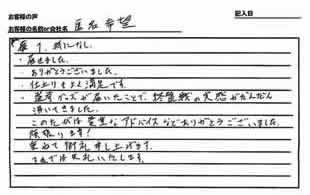 お客様の声
記入日
お客様の名前or会社名 匿名希望
特になし。
・届きました。
・ありがとうございました。
・仕上りもまあ満足です。
・グッズが届いたことで、終盤戦の実感がだんだん
湧いてきました。
このたびは貴重なアドバイスなどありがとうございました。
頑張ります!
重ねて御礼申し上げます。
まずは御礼いたします。